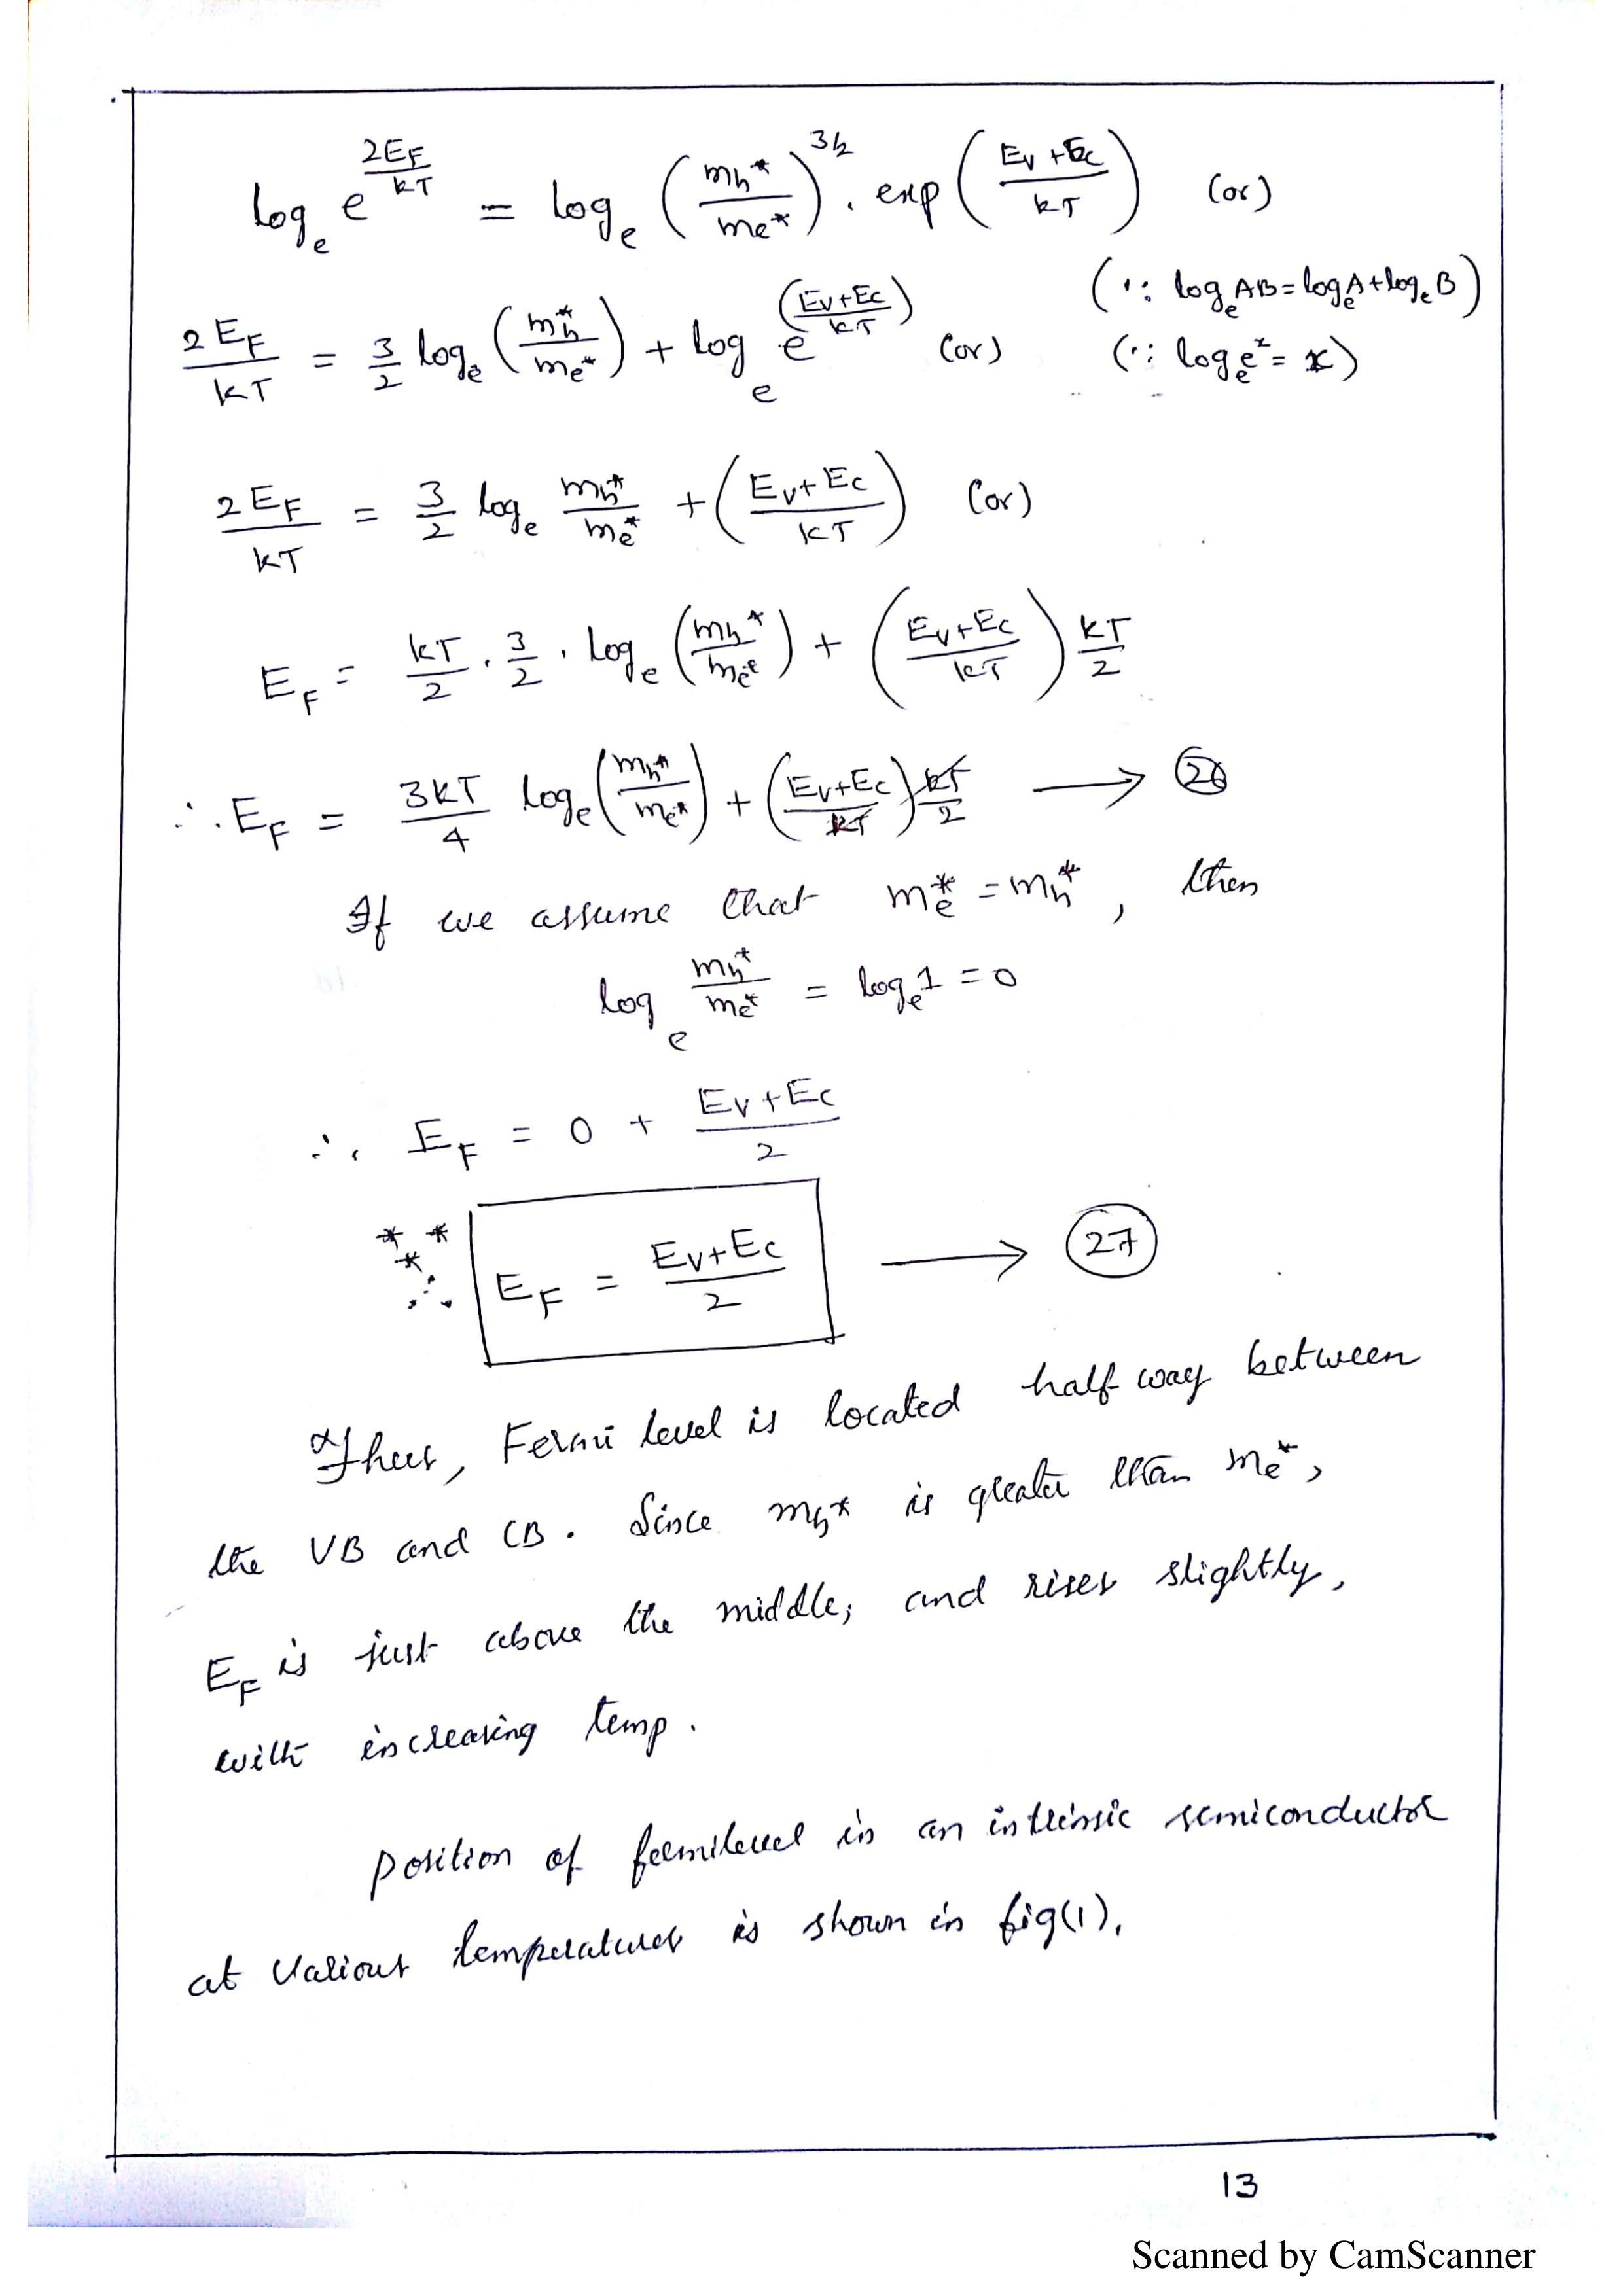 log_e e^(2E_F/kT) = log_e (m_h*/m_e*)^(3/2) . exp((E_v+E_c)/kT) (or)
(∵ log_e AB = log_e A + log_e B)
2E_F/kT = 3/2 log_e (m_h*/m_e*) + log_e e^((E_v+E_c)/kT) (or) (∵ log_e e^x = x)
2E_F/kT = 3/2 log_e m_h*/m_e* + ((E_v+E_c)/kT) (or)
E_F = kT/2 . 3/2 . log_e (m_h*/m_e*) + ((E_v+E_c)/kT) kT/2
∴ E_F = 3kT/4 log_e (m_h*/m_e*) + ((E_v+E_c)/kT) kT/2 → 26
If we assume that m_e* = m_h*, then
log_e m_h*/m_e* = log_e 1 = 0
∴ E_F = 0 + (E_v+E_c)/2
*** ∴ E_F = (E_v+E_c)/2 → 27
Thus, Fermi level is located half way between
the VB and CB. Since m_h* is greater than m_e*,
E_F is just above the middle, and rises slightly,
with increasing temp.
Position of fermilevel in an intrinsic semiconductor
at various temperatures is shown in fig(1).
13
Scanned by CamScanner